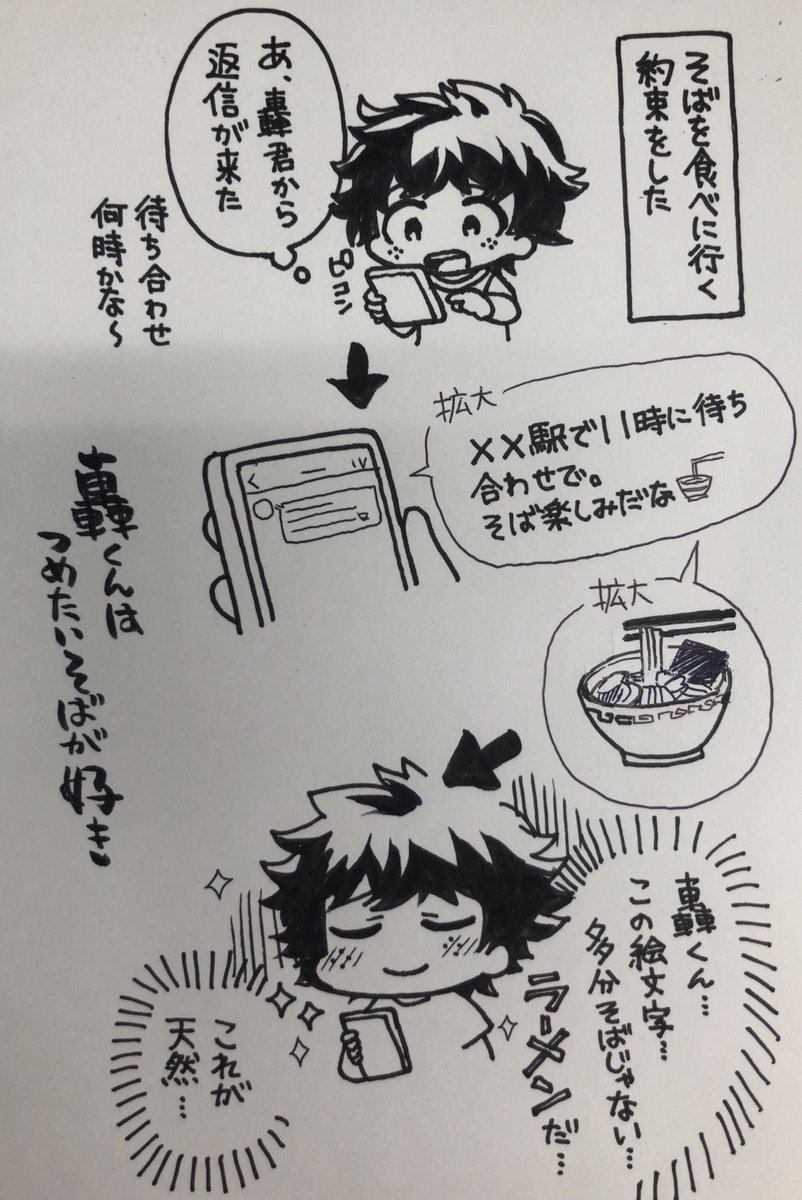 そばを食べに行く
約束をした
あ、轟君から
返信が来た
ピコン
待ち合わせ
何時かな～
拡大
××駅で11時に待ち
合わせで。
そば楽しみだな
拡大
轟くんは
つめたいそばが好き
轟くん…
この絵文字…
多分そばじゃない…
ラーメンだ…
これが
天然…